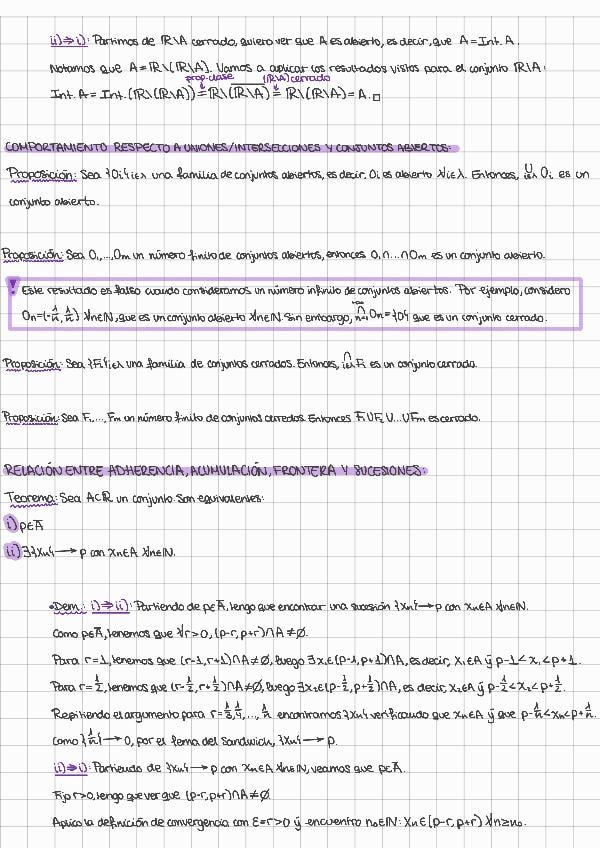 ii)⇒i): Partimos de ℝ\A cerrado, quiero ver que A es abierto, es decir, que A=Int. A.
Notamos que A=ℝ\(ℝ\A). Vamos a aplicar los resultados vistos para el conjunto ℝ\A:
prop. clase (ℝ\A) cerrado
Int. A = Int.(ℝ\(ℝ\A)) = ℝ\(\overline{ℝ\A}) = ℝ\(ℝ\A) = A. □
COMPORTAMIENTO RESPECTO A UNIONES/INTERSECCIONES Y CONJUNTOS ABIERTOS:
Proposición: Sea {Oi}i∈λ una familia de conjuntos abiertos, es decir, Oi es abierto ∀i∈λ. Entonces, ∪i∈λ Oi es un
conjunto abierto.
Proposición: Sea O₁,...,Om un número finito de conjuntos abiertos, entonces O₁∩...∩Om es un conjunto abierto.
! Este resultado es falso cuando consideramos un número infinito de conjuntos abiertos. Por ejemplo, considero
On=(-1/n, 1/n) ∀n∈ℕ, que es un conjunto abierto ∀n∈ℕ. Sin embargo, ∩n=1^{+∞} On={0} que es un conjunto cerrado.
Proposición: Sea {Fi}i∈λ una familia de conjuntos cerrados. Entonces, ∩i∈λ Fi es un conjunto cerrado.
Proposición: Sea F₁,...,Fm un número finito de conjuntos cerrados. Entonces F₁∪F₂∪...∪Fm es cerrado.
RELACIÓN ENTRE ADHERENCIA, ACUMULACIÓN, FRONTERA Y SUCESIONES:
Teorema: Sea A⊂ℝ un conjunto. Son equivalentes:
i) p∈Ā
ii) ∃{xn}→p con xn∈A ∀n∈ℕ.
•Dem.: i)⇒ii): Partiendo de p∈Ā, tengo que encontrar una sucesión {xn}→p con xn∈A ∀n∈ℕ.
Como p∈Ā, tenemos que ∀r>0, (p-r, p+r)∩A≠∅.
Para r=1, tenemos que (r-1, r+1)∩A≠∅, luego ∃x₁∈(p-1, p+1)∩A, es decir, x₁∈A y p-1<x₁<p+1.
Para r=1/2, tenemos que (r-1/2, r+1/2)∩A≠∅, luego ∃x₂∈(p-1/2, p+1/2)∩A, es decir, x₂∈A y p-1/2<x₂<p+1/2.
Repitiendo el argumento para r=1/3, 1/4, ..., 1/n encontramos {xn} verificando que xn∈A y que p-1/n<xn<p+1/n.
Como {1/n}→0, por el tema del sandwich, {xn}→p.
ii)⇒i): Partiendo de {xn}→p con xn∈A ∀n∈ℕ, veamos que p∈Ā.
Fijo r>0, tengo que ver que (p-r, p+r)∩A≠∅.
Aplico la definición de convergencia con ε=r>0 y encuentro n₀∈ℕ: xn∈(p-r, p+r) ∀n≥n₀.